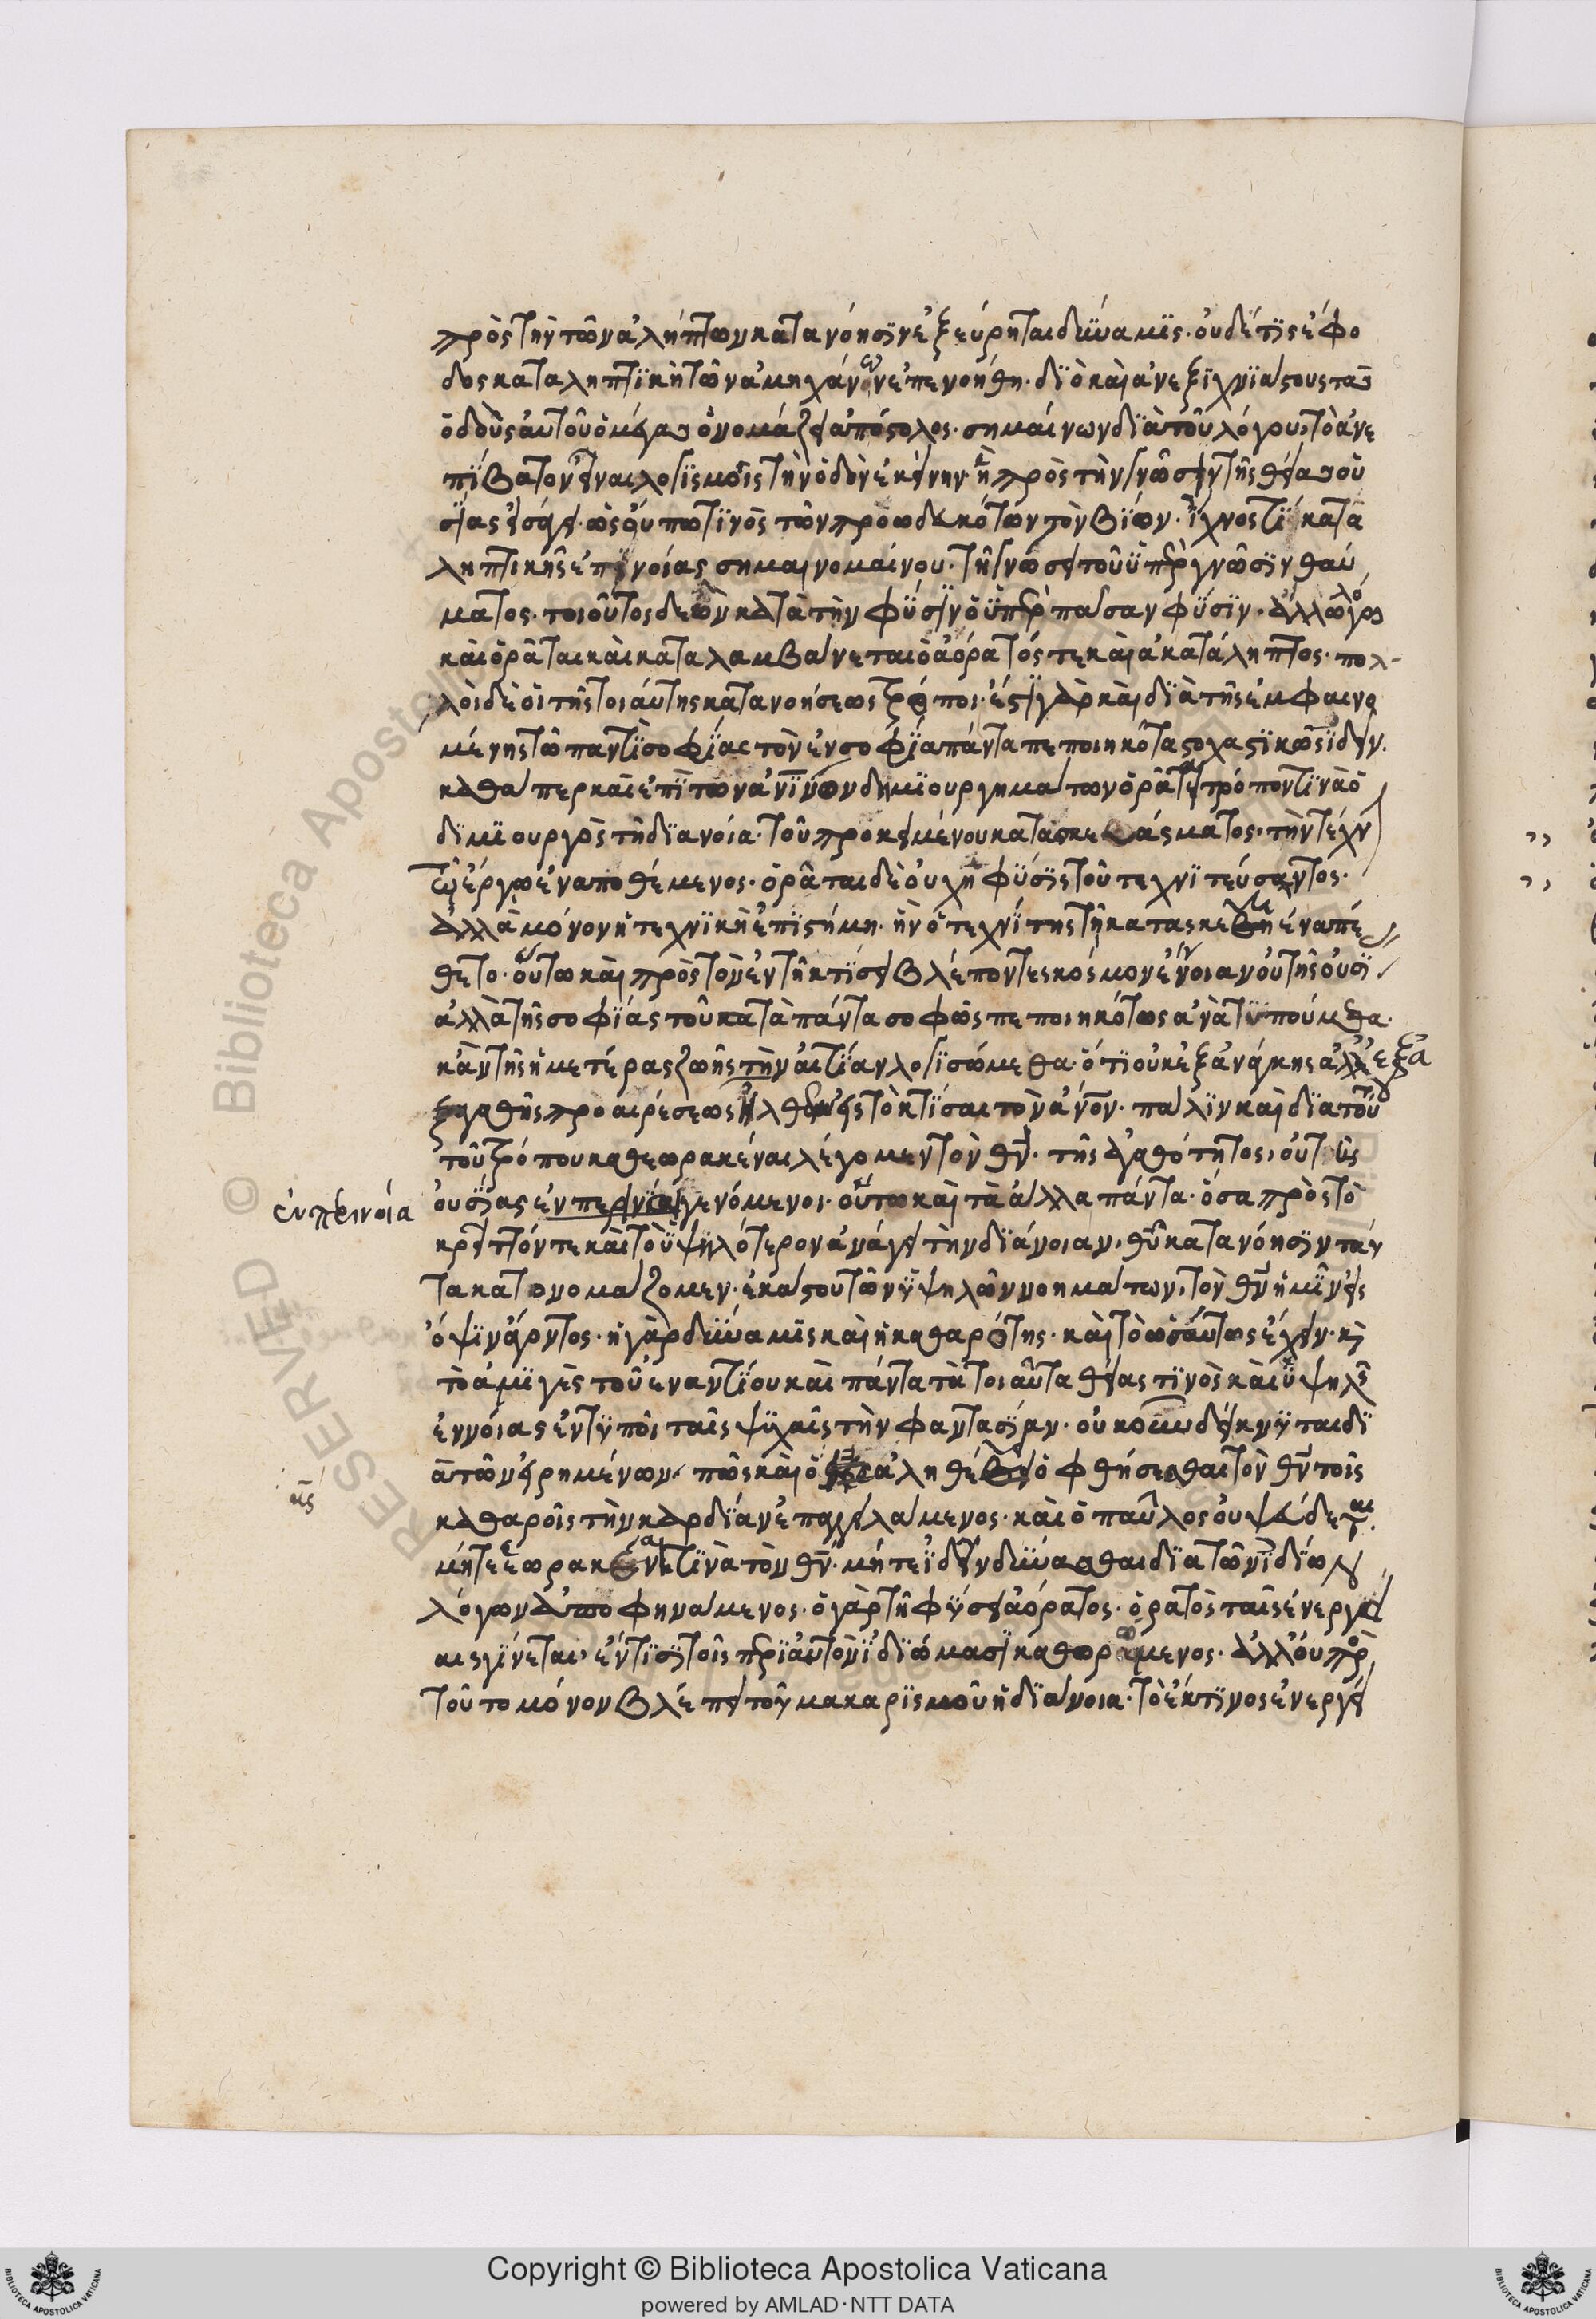 πρὸς τὴν τῶν ἀλήπτων κατανόησϊν ἐξεύρηται δϋναμϊς· οὐδέ τϊς ἔφο
δος καταληπτϊκὴ τῶν ἀμηχάνων ἐπενοήθη· δϊὸ καὶ ἀνεξϊχνϊάστους τὰς
ὁδοὺς αὐτοῦ ὁ μέγας ὀνομάζει ἀπόστολος· σημαίνων δϊὰ τοῦ λόγου, τὸ ἀνε
πίβατον εἶναι λογϊσμοῖς τὴν ὁδὸν ἐκείνην· ἣ πρὸς τὴν γνῶσιν τῆς θείας οὐ
σίας εἰσάγει· ὡς οὔπω τϊνὸς τῶν προωδευκότων τὸν βίον· ἴχνος τϊ κατα
ληπτικῆς ἐπινοίας σημαινομαίνου· τῇ γνώσει τοῦ ὑπὲρ γνῶσϊν θαύ
ματος· τοιοῦτος δὲ ὢν κατὰ τὴν φύσιν ὁ ὑπὲρ πᾶσαν φύσϊν· ἄλλῳ λόγῳ
καὶ ὁρᾶται καὶ καταλαμβάνεται ὁ ἀόρατός τε καὶ ἀκατάληπτος· πολ-
λοὶ δὲ οἱ τῆς τοιάυτης κατανοήσεως τρόποι· ἔστϊ γὰρ καὶ δϊὰ τῆς ἐμφαινο
μένης τῶ παντὶ σοφίας τὸν ἐν σοφίᾳ πάντα πεποιηκότα στοχαστϊκῶς ἰδεῖν·
καθάπερ καὶ ἐπὶ τῶν ἀνΐνων δημϊουργημάτων ὁρᾶται τρόπον τϊνὰ ὁ
δϊμϊουργὸς τῆ δϊανοία· τοῦ προκειμένου κατασκευάσματος· τὴν τέχν
τῷ ἔργῳ ἐναποθέμενος· ὁρᾶται δὲ οὐχ ἡ φύσϊς τοῦ τεχνϊτεύσαντος·
ἀλλὰ μόνον ἡ τεχνϊκὴ ἐπϊστήμη· ἣν ὁ τεχνίτης τῇ κατασκευῇ ἐναπέ
θετο· οὕτω καὶ πρὸς τὸν ἐν τῆ κτίσει βλέποντες κόσμον ἔννοιαν οὐ τῆς οὐσϊ
ἀλλὰ τῆς σοφΐας τοῦ κατὰ πάντα σοφῶς πεποιηκότως ἀνατϋπούμεθα·
κἂν τῆς ἡμετέρας ζωῆς τὴν αἰτΐαν λογϊσώμεθα· ὅτϊ οὐκ ἐξ ἀνάγκης ἀλλ' ἐξ ἀ
γαθῆς προαιρέσεως ἦλθεν εἰς τὸ κτϊσαι τὸν ἄνον· πάλϊν καὶ δϊὰ τού
του τοῦ τρόπου καθεωρακέναι λέγομεν τὸν θν· τῆς ἀγαθότητος, οὐ τῆς
ἐν περινοία
οὐσϊας ἐν περινοία γενόμενοι· οὕτω καὶ τὰ ἄλλα πάντα· ὅσα πρὸς τὸ
κρεῖττόν τε καὶ τὸ ὑψηλότερον ἀνάγει τὴν δϊάνοιαν, θυ κατανόησϊν ταῦ
τα κατονομάζομεν· ἑκάστου τῶν ϋψηλῶν νοημάτων, τὸν θν ἡμῖν εἰς
ὄψϊν ἄγοντος· ἡ γὰρ δϋναμϊς καὶ ἡ καθαρότης· καὶ τὸ ὡσάυτως ἔχειν· κ
τὸ ἀμϊγὲς τοῦ ἐναντΐου καὶ πάντα τὰ τοιαῦτα θείας τϊνὸς καὶ ϋψηλῆς
ἐννόιας ἐντϋποῖ ταῖς ψϋχαῖς τὴν φαντασΐαν· οὐκοῦν δείκνϋται δϊ
ὰ τῶν εἰρημένων πῶς καὶ ὁ κς ἀληθέυει ὀφθήσεσθαι τὸν θν τοῖς
κς
καθαροῖς τὴν καρδΐαν ἐπαγγειλάμενος· καὶ ὁ παῦλος οὐ ψεύδεται
μήτε ἑωρακέναι τϊνὰ τὸν θν· μήτε ἰδεῖν δϋνασθαι δϊὰ τῶν ἰδϊων
λόγων ἀποφηνάμενος· ὁ γὰρ τῆ φϋσει ἀόρατος· ὁρατὸς ταῖς ἐνεργεί
αις γίνεται· ἔν τϊσϊ τοῖς περὶ ἀυτὸν ἰδϊώμασϊ καθορώμενος· ἀλλ' οὐ πρὸς
τοῦτο μόνον βλέπει τοῦ μακαρϊσμοῦ ἡ δϊάνοια· τὸ ἔκ τϊνος ἐνεργεί
Copyright © Biblioteca Apostolica Vaticana
powered by AMLAD·NTT DATA
RESERVED © Biblioteca Apostolica